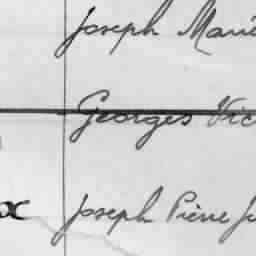 Joseph Marie
Georges Vic
x Joseph Pierre Ju